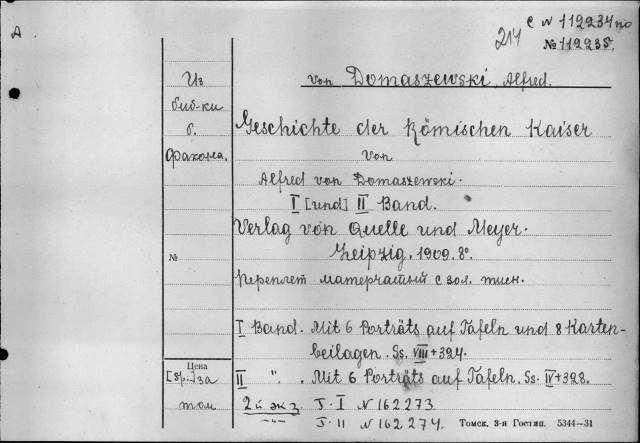 A
214
с № 112234 по
№ 112235.
Из
биб-ки
б.
von Domaszewski, Alfred.
Geschichte der Römischen Kaiser
von
Alfred von Domaszewski.
I [und] II Band.
Verlag von Quelle und Meyer.
№ Leipzig. 1909. 8º.
Переплет матерчатый с зол. тисн.
I Band. Mit 6 Porträts auf Tafeln und 8 Karten-
beilagen. Ss. VIII + 324.
Цена
за
том
II " . Mit 6 Porträts auf Tafeln. Ss. IV + 328.
2й экз. T. I № 162273.
T. II № 162274.
Томск. 3-я Гостип. 5344—31